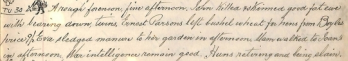 Tu 30 A rough forenoon fine afternoon. John Wilkes returned good fat ewe
with bearing down, twins. Ernest Parsons left bushel wheat for hens from
price 9/6. Eva sledged manure to her garden in afternoon. Mem walked to
in afternoon. War intelligence remain good. Huns retiring and being slain.